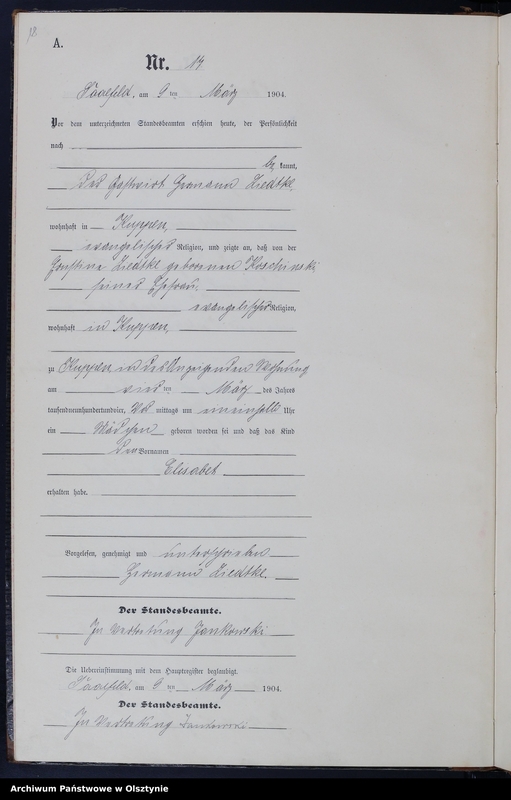 A.
Nr. 14
Saalfeld, am 9ten März 1904.
Vor dem unterzeichneten Standesbeamten erschien heute, der Persönlichkeit
nach
be kannt,
der Gastwirt Hermann Ziedtke,
wohnhaft in Kuppen,
evangelischer Religion, und zeigte an, daß von der
Ziedtke geborenen Koschinski,
seiner Ehefrau,
evangelischer Religion,
wohnhaft in Kuppen,
zu Kuppen in der Anzeigenden Wohnung
am vier ten März des Jahres
tausendneunhundertundvier, Vor mittags um Uhr
ein Mädchen geboren worden sei und daß das Kind
den Vornamen
Elisabet
erhalten habe.
Vorgelesen, genehmigt und unterschrieben
Hermann Ziedtke.
Der Standesbeamte.
In Vertretung Jankowski
Die Uebereinstimmung mit dem Hauptregister beglaubigt.
Saalfeld, am 9ten März 1904.
Der Standesbeamte.
In Vertretung Jankowski
Archiwum Państwowe w Olsztynie